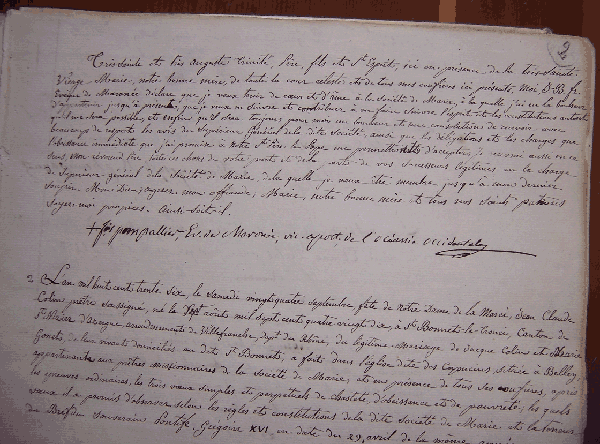 2
Très Sainte et très auguste Trinité, Père, fils et St Esprit, ici en présence de la très Sainte
Vierge Marie, notre bonne mère, de toute la cour céleste et de tous mes confrères ici présents, Moi, J. B. fr.
Evêque de Maronée déclare que je veux vivre de cœur et d'âme à la Société de Marie, à la quelle j'ai eu le bonheur
d'appartenir jusqu'à présent; que je veux en suivre et contribuer à en faire suivre l'esprit et les constitutions autant
qu'il me sera possible, et enfin qu'il sera toujours pour moi un bonheur et une consolation de recevoir avec
beaucoup de respect les avis du Supérieur général de la dite Société, ainsi que les obligations et les charges que
l'obéissance immédiate que j'ai promise à notre St Père le Pape me permettra d'accepter,
Supérieur général de la Société de Marie, de la quelle je veux être membre jusqu'à mon dernier
soupir. Mon Dieu, agréez mon offrande, Marie, notre bonne mère et tous vos Saints patrons
soyez-moi propices. Ainsi soit-il.
+ fçs pompallier, Ev. de Maronée, vic. apost. de l'Océanie occidentale
2 L'an mil huit cent trente six, le samedi vingt quatre septembre fête de notre Dame de la Merci, Jean Claude
Colin, prêtre soussigné, né le sept août mil sept cent quatre vingt dix, à St Bonnet-le-Troncy, Canton de
St Nizier d'Azergue, arrondissement de Villefranche, dépt du Rhône, du légitime mariage de Jacque Colin et Marie
Gonnet, de leur vivant domiciliés au dit St Bonnet, a fait dans l'église dite des Capucins, située à Belley,
appartenant aux prêtres missionnaires de la Société de Marie, et en présence de tous ses confrères, après
les épreuves ordinaires, les trois vœux simples et perpétuels de chasteté, d'obéissance et de pauvreté, les quels
vœux il a promis d'observer selon les règles et constitutions de la dite Société de Marie et la teneur
du Bref du Souverain Pontife, Grégoire XVI, en date du 29 avril de la même année